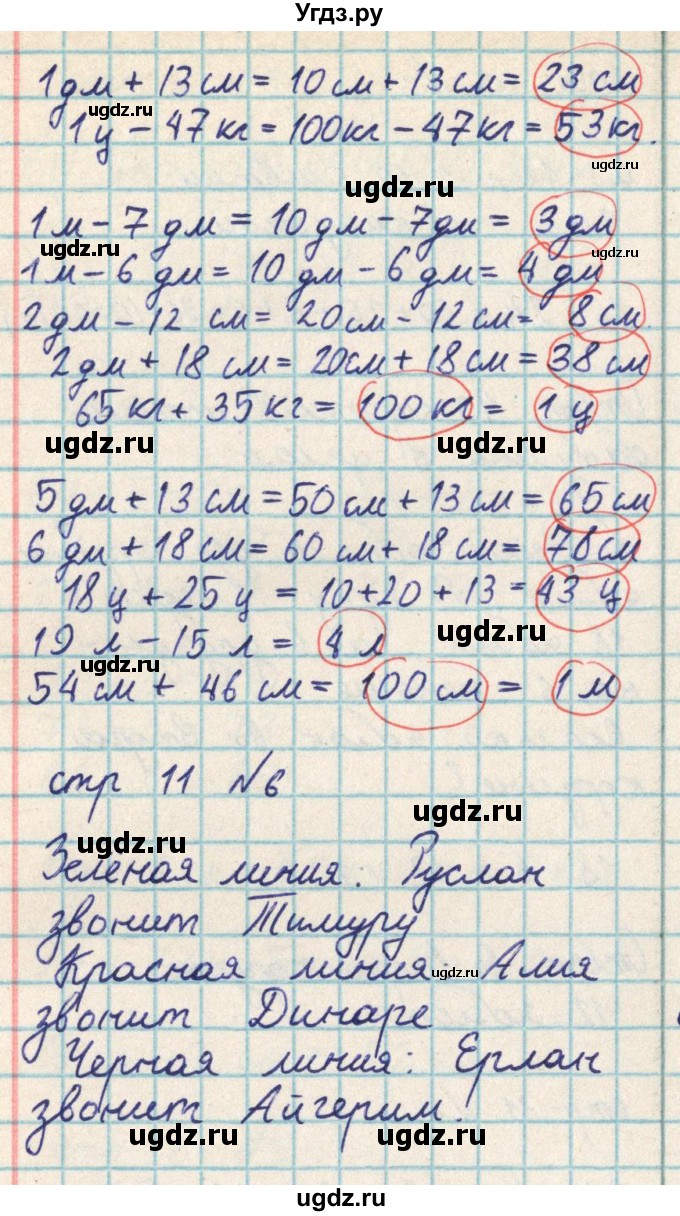 Угдз.ру
1 дм + 13 см = 10 см + 13 см = 23 см
ugdz.ru
1 ц - 47 кг = 100 кг - 47 кг = 53 кг.
ugdz.ru
ugdz.ru
1 м - 7 дм = 10 дм - 7 дм = 3 дм
ugdz.ru ugdz.ru
1 м - 6 дм = 10 дм - 6 дм = 4 дм
2 дм - 12 см = 20 см - 12 см = 8 см
2 дм + 18 см = 20 см + 18 см = 38 см
65 кг + 35 кг = 100 кг = 1 ц
ugdz.ru ugdz.ru
5 дм + 13 см = 50 см + 13 см = 65 см
6 дм + 18 см = 60 см + 18 см = 78 см
18 ц + 25 ц = 10 + 20 + 13 = 43 ц
19 л - 15 л = 4 л
ugdz.ru
ugdz.ru
54 см + 46 см = 100 см = 1 м
стр 11 №6
ugdz.ru
ugdz.ru
Зеленая линия: Руслан
звонит Тимуру
Красная линия: Алия
ugdz.ru
звонит Динаре
Черная линия: Ерлан
звонит Айгерим.
ugdz.ru ugdz.ru
ugdz.ru